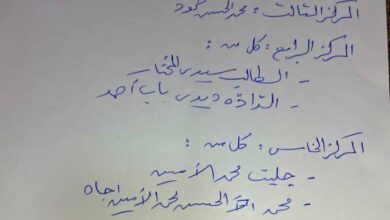 المركز الثالث: محمد الحسن محمود
المركز الرابع: كل من:
- الطالب سيدي المختار
- الداده ديدي باب أحمد
المركز الخامس: كل من:
- جليت محمد الأمين
- محمد الحسن محمد الأمين اجاه